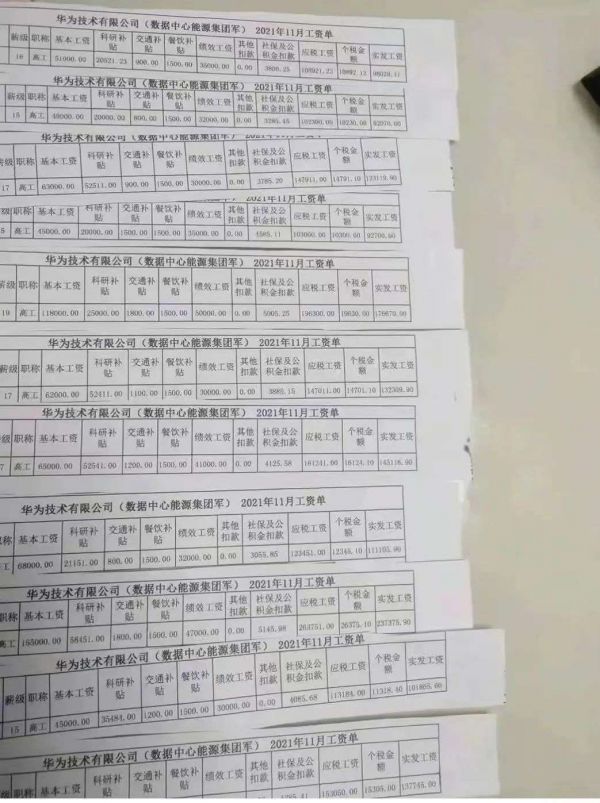 华为技术有限公司（数据中心能源集团军） 2021年11月工资单
薪级 职称 基本工资 科研补贴 交通补贴 餐饮补贴 绩效工资 其他扣款 社保及公积金扣款 应税工资 个税金额 实发工资
16 高工 51000.00 20521.23 900.00 1500.00 35000.00 0.00 3800.25 108921.23 10892.12
华为技术有限公司（数据中心能源集团军） 2021年11月工资单
薪级 职称 基本工资 科研补贴 交通补贴 餐饮补贴 绩效工资 其他扣款 社保及公积金扣款 应税工资 个税金额 实发工资
15 高工 20000.00 800.00 1500.00 32000.00 0.00 3285.45 102300.00 10230.00 92070.00
华为技术有限公司（数据中心能源集团军） 2021年11月工资单
薪级 职称 基本工资 科研补贴 交通补贴 餐饮补贴 绩效工资 其他扣款 社保及公积金扣款 应税工资 个税金额 实发工资
17 高工 63000.00 52511.00 900.00 1500.00 30000.00 0.00 3785.20 147911.00 14791.10
2021年11月工资单
职称 基本工资 科研补贴 交通补贴 餐饮补贴 绩效工资 其他扣款 社保及公积金扣款 应税工资 个税金额 实发工资
5 高工 45000.00 20000.00 1500.00 1500.00 35000.00 0.00 4585.11 103000.00 10300.00
华为技术有限公司（数据中心能源集团军） 2021年11月工资单
薪级 职称 基本工资 科研补贴 交通补贴 餐饮补贴 绩效工资 其他扣款 社保及公积金扣款 应税工资 个税金额 实发工资
19 高工 118000.00 25000.00 1800.00 1500.00 50000.00 0.00 5005.25 196300.00 19630.00 176670.00
华为技术有限公司（数据中心能源集团军） 2021年11月工资单
薪级 职称 基本工资 科研补贴 交通补贴 餐饮补贴 绩效工资 其他扣款 社保及公积金扣款 应税工资 个税金额 实发工资
17 高工 62000.00 52411.00 1100.00 1500.00 30000.00 0.00 3885.15 147011.00 14701.10 132309.90
华为技术有限公司（数据中心能源集团军） 2021年11月工资单
薪级 职称 基本工资 科研补贴 交通补贴 餐饮补贴 绩效工资 其他扣款 社保及公积金扣款 应税工资 个税金额 实发工资
7 高工 65000.00 52541.00 1200.00 1500.00 41000.00 0.00 4125.58 161241.00 16124.10 145116.90
华为技术有限公司（数据中心能源集团军） 2021年11月工资单
职称 基本工资 科研补贴 交通补贴 餐饮补贴 绩效工资 其他扣款 社保及公积金扣款 应税工资 个税金额 实发工资
工 68000.00 21151.00 800.00 1500.00 32000.00 0.00 3055.85 123451.00 12345.10 111105.90
华为技术有限公司（数据中心能源集团军） 2021年11月工资单
职称 基本工资 科研补贴 交通补贴 餐饮补贴 绩效工资 其他扣款 社保及公积金扣款 应税工资 个税金额 实发工资
高工 155000.00 58451.00 1800.00 1500.00 47000.00 0.00 5145.98 263751.00 26375.10 237375.90
华为技术有限公司（数据中心能源集团军） 2021年11月工资单
薪级 职称 基本工资 科研补贴 交通补贴 餐饮补贴 绩效工资 其他扣款 社保及公积金扣款 应税工资 个税金额 实发工资
15 高工 45000.00 35484.00 1200.00 1500.00 30000.00 0.00 4085.68 113184.00 11318.40 101865.60
华为技术有限公司（数据中心能源集团军） 2021年11月工资单
薪级 职称 基本工资 科研补贴 交通补贴 餐饮补贴 绩效工资 其他扣款 社保及公积金扣款 应税工资 个税金额 实发工资
153050.00 15305.00 137745.00